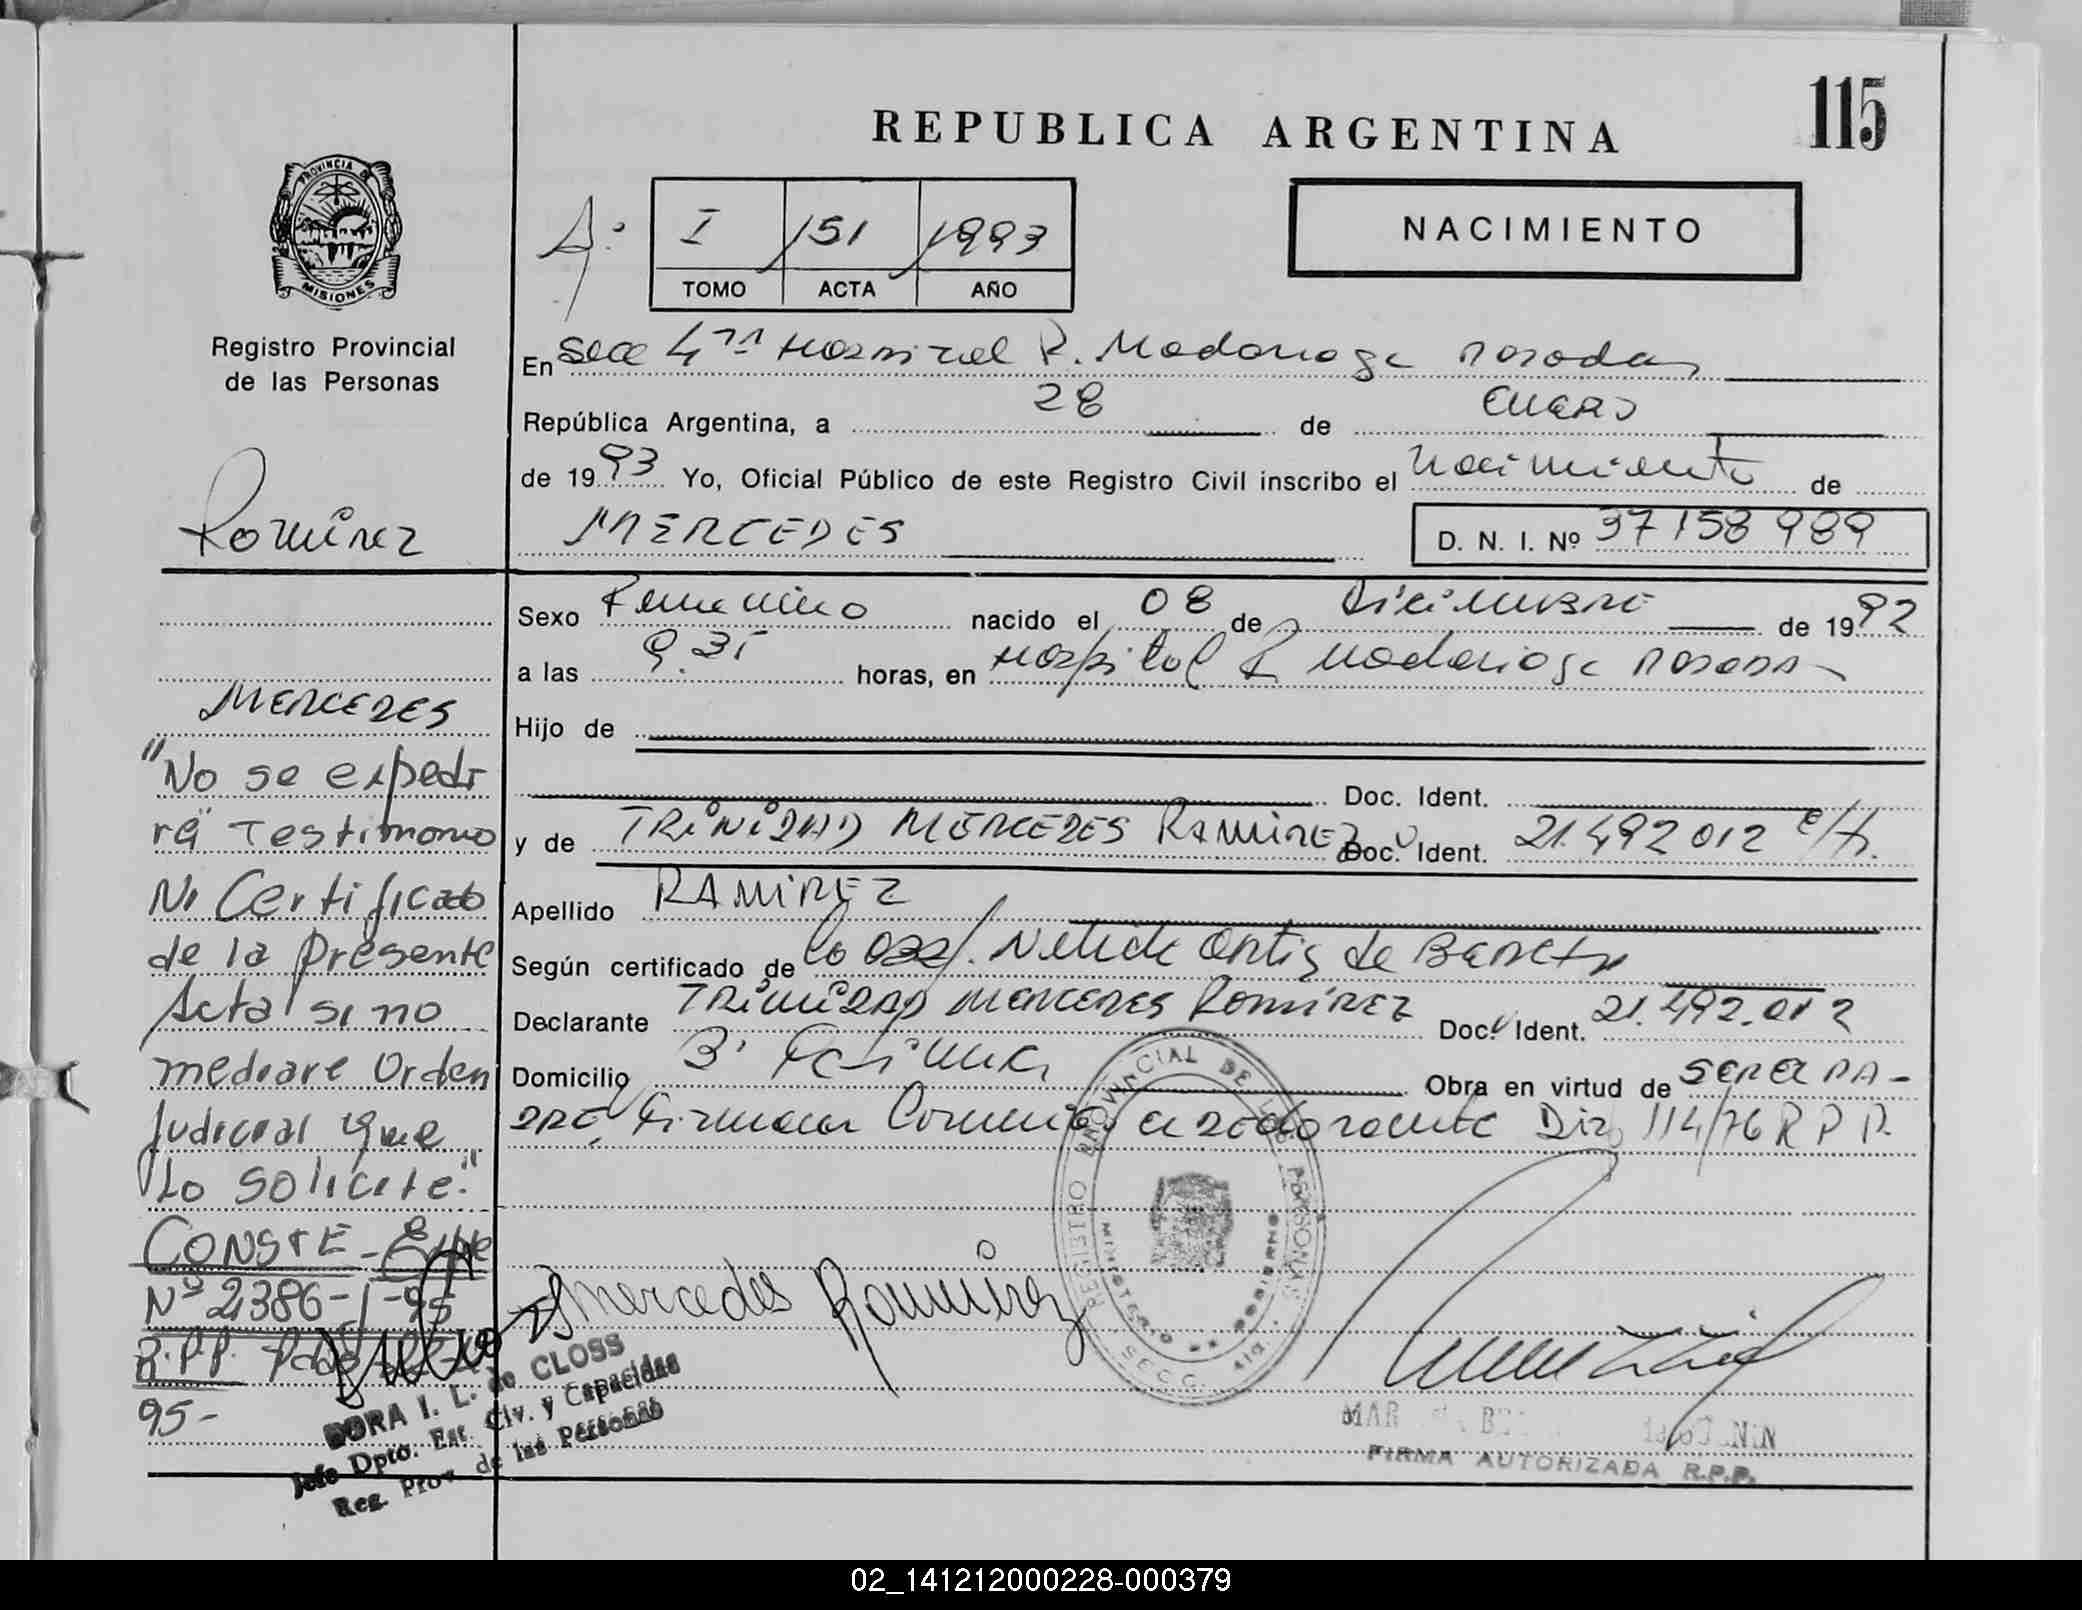 115
REPUBLICA ARGENTINA
PROVINCIA DE
MISIONES
I 151 1993
TOMO ACTA AÑO
NACIMIENTO
Registro Provincial
de las Personas
En Secc 4ta Hospital R. Madariaga Posadas
República Argentina, a 28 de Enero
de 1993 Yo, Oficial Público de este Registro Civil inscribo el nacimiento de
Ramirez
MERCEDES
D. N. I. Nº 37158989
Sexo Femenino nacido el 08 de Diciembre de 1992
a las 9.35 horas, en Hospital R Madariaga Posadas
Hijo de
Doc. Ident.
y de TRINIDAD MERCEDES RAMIREZ Doc. Ident. 21.492.012
Apellido RAMIREZ
Según certificado de la Nelide Ortiz de
Declarante TRINIDAD MERCEDES RAMIREZ Doc. Ident. 21.492.012
Domicilio Bº Obra en virtud de SER EL PA-
DRE, 114/76 R P P.
MERCEDES
"No se expedi
rá Testimonio
Ni Certificado
de la Presente
Acta si no
mediare Orden
Judicial que
Lo solicite."
CONSTE - Expte
Nº 2386-I-95
R.P.P.
95-
Mercedes Ramirez
REGISTRO PROVINCIAL DE LAS PERSONAS
MINISTERIO DE GOBIERNO
DORA I. L. de CLOSS
Jefe Dpto. Est. Civ. y Capacidad
Reg. Prov. de las Personas
FIRMA AUTORIZADA R.P.P.
02_141212000228-000379